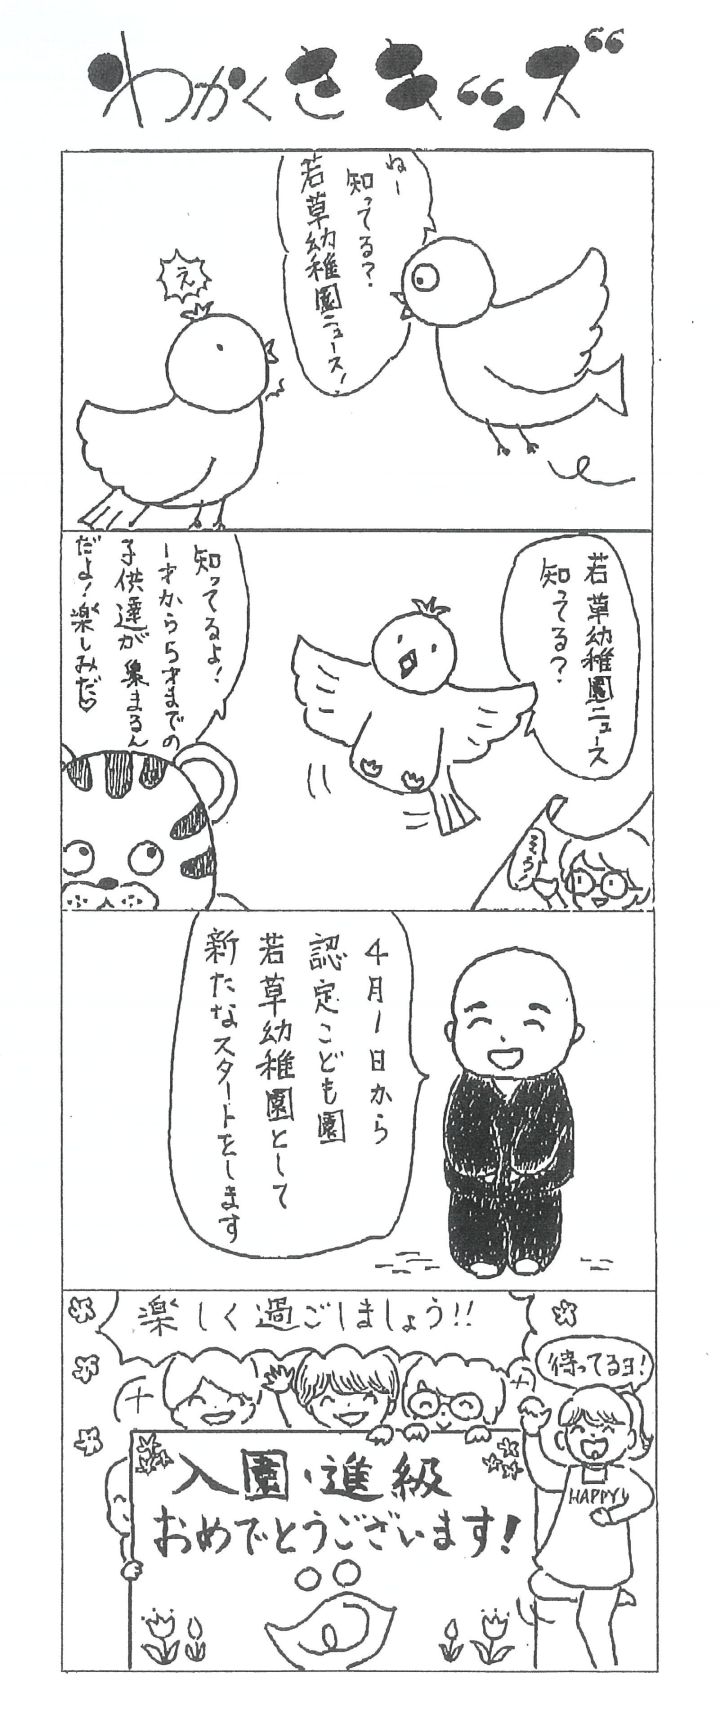 わかくさキッズ
ねー
知ってる?
若草幼稚園ニュース!
え
若草幼稚園ニュース
知ってる?
知ってるよ!
1才から5才までの
子供達が集まるん
だよ!楽しみだ♡
4月1日から
認定こども園
若草幼稚園として
新たなスタートをします
楽しく過ごしましょう!!
待ってるヨ!
HAPPY
入園・進級
おめでとうございます!